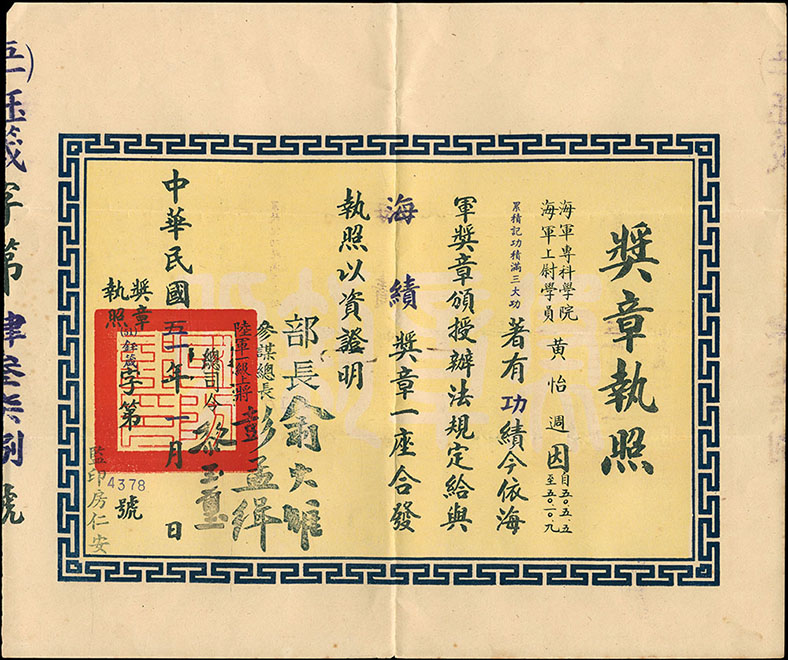 獎章執照
海軍專科學院
海軍上尉學員
黃怡週因
自五〇.五.五
至五〇.一〇.九
累積記功積滿三大功
著有功績今依海
軍獎章頒授辦法規定給與
海績獎章一座合發
執照以資證明
部長俞大維
參謀總長
陸軍一級上將
彭孟緝
總司令黎玉璽
中華民國五十一年一月 日
獎章
執照
字第
4378
號
監印房仁安
字第肆叄柒捌號